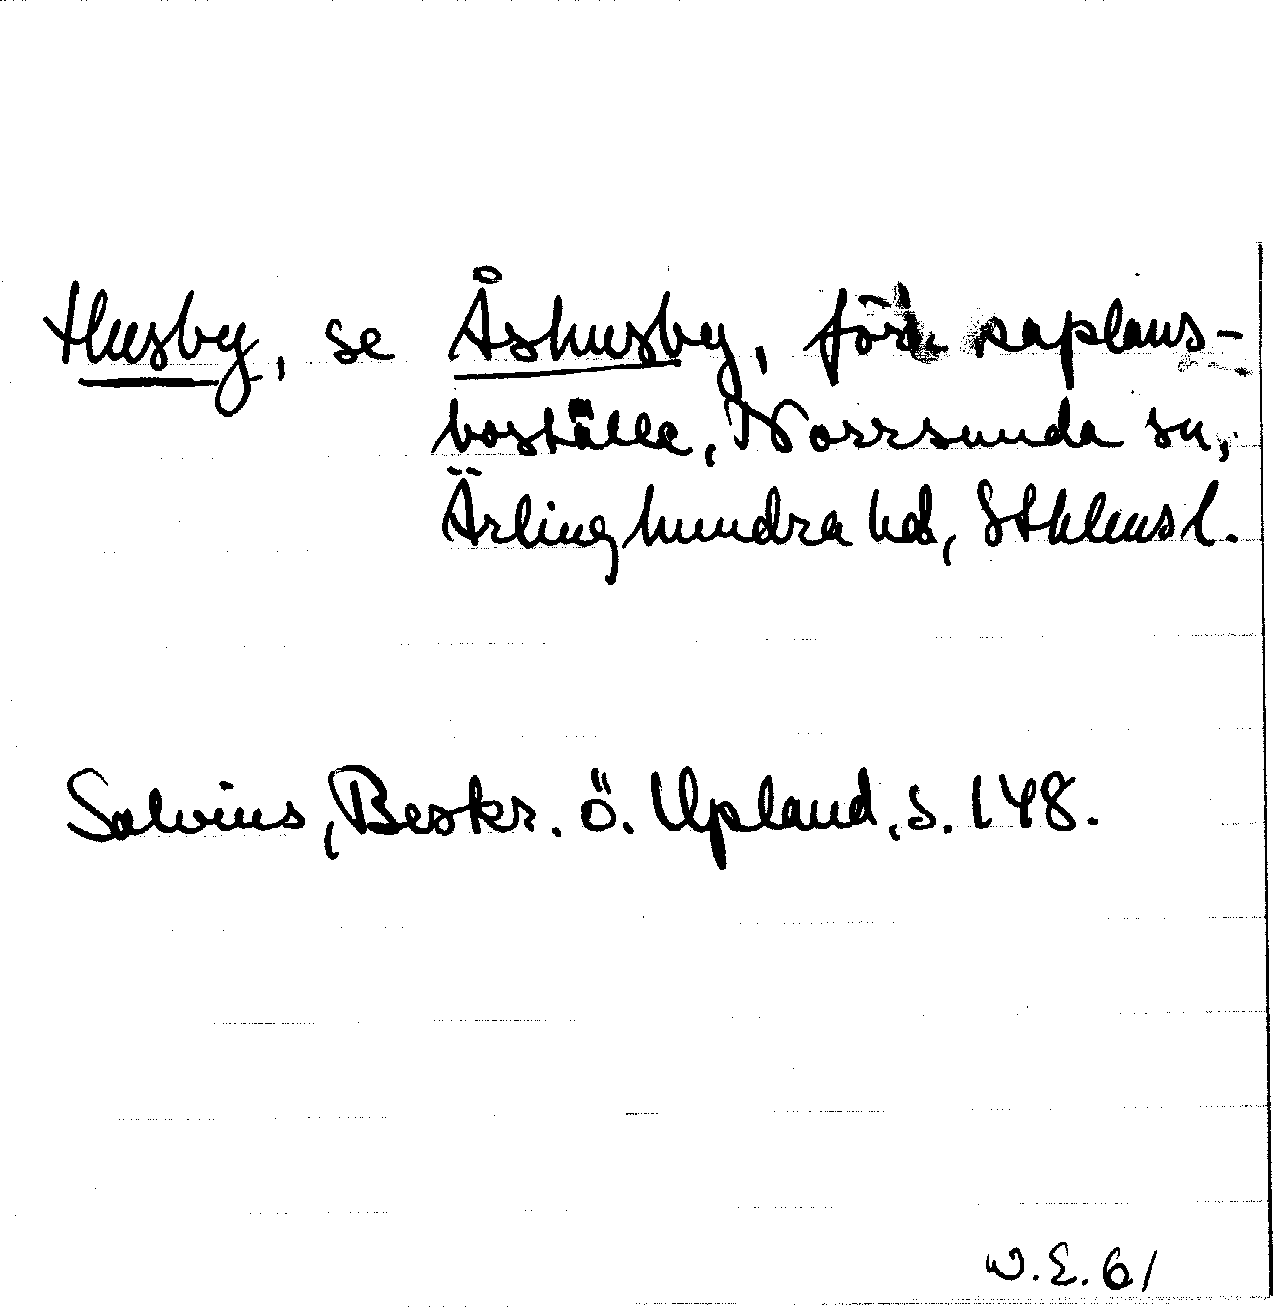 Husby, se Åshusby, förr kaplans-
boställe, Norrsunda sn,
Ärlinghundra hd, Sthlms l.
Salvius, Beskr. ö. Upland, s. 148.
W.E. 61